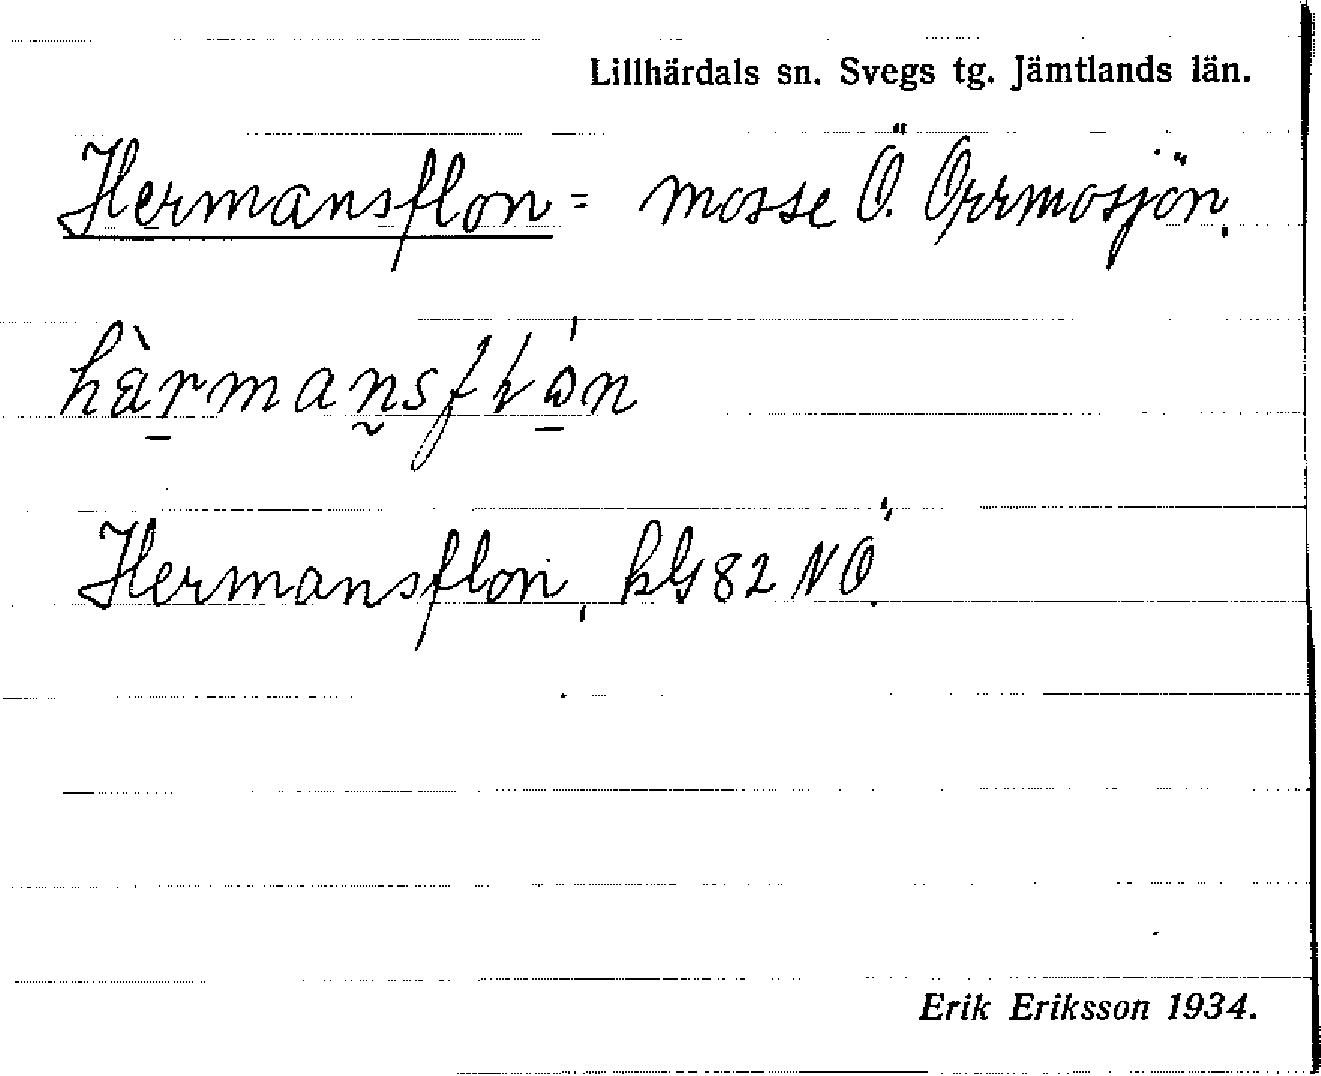 Lillhärdals sn. Svegs tg. Jämtlands län.
Hermansflon = mosse Ö. Orrmosjön.
Hermansflon, bl 82 NÖ.
Erik Eriksson 1934.